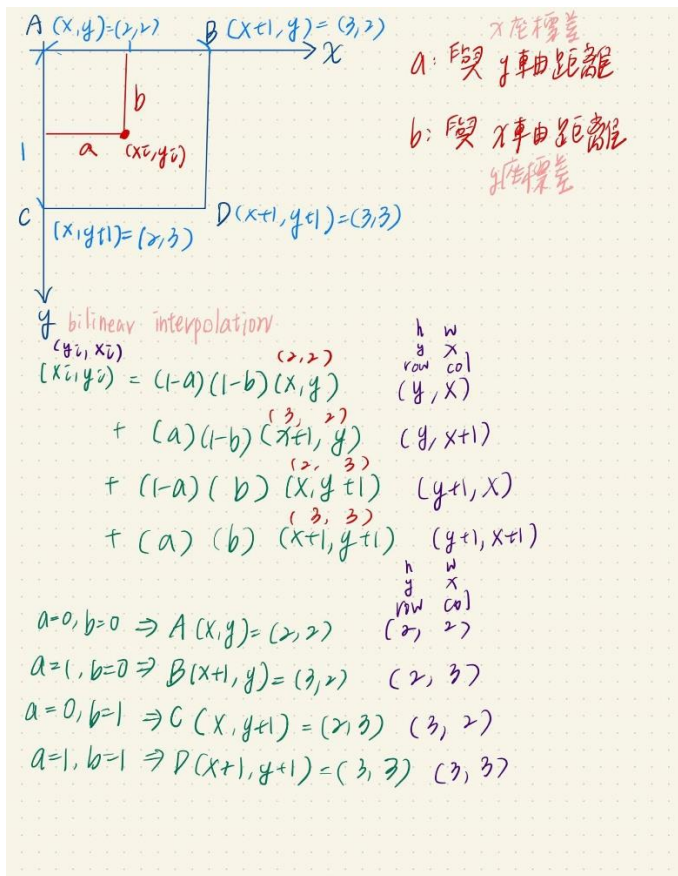 A (x,y)=(2,2)
B (x+1,y)=(3,2)
x
x座標差
a: 與 y軸距離
b
a
(xi,yi)
1
b: 與 x軸距離
y座標差
C
(x,y+1)=(2,3)
D(x+1,y+1)=(3,3)
y
bilinear interpolation
(yi,xi)
(2,2)
h w
y x
row col
(xi,yi) = (1-a)(1-b)(x,y) (y,x)
(3, 2)
+ (a)(1-b)(x+1,y) (y,x+1)
(2, 3)
+ (1-a)(b)(x,y+1) (y+1,x)
(3, 3)
+ (a)(b)(x+1,y+1) (y+1,x+1)
h w
y x
row col
a=0,b=0 ⇒ A(x,y)=(2,2) (2, 2)
a=1,b=0 ⇒ B(x+1,y)=(3,2) (2, 3)
a=0,b=1 ⇒ C(x,y+1)=(2,3) (3, 2)
a=1,b=1 ⇒ D(x+1,y+1)=(3,3) (3, 3)